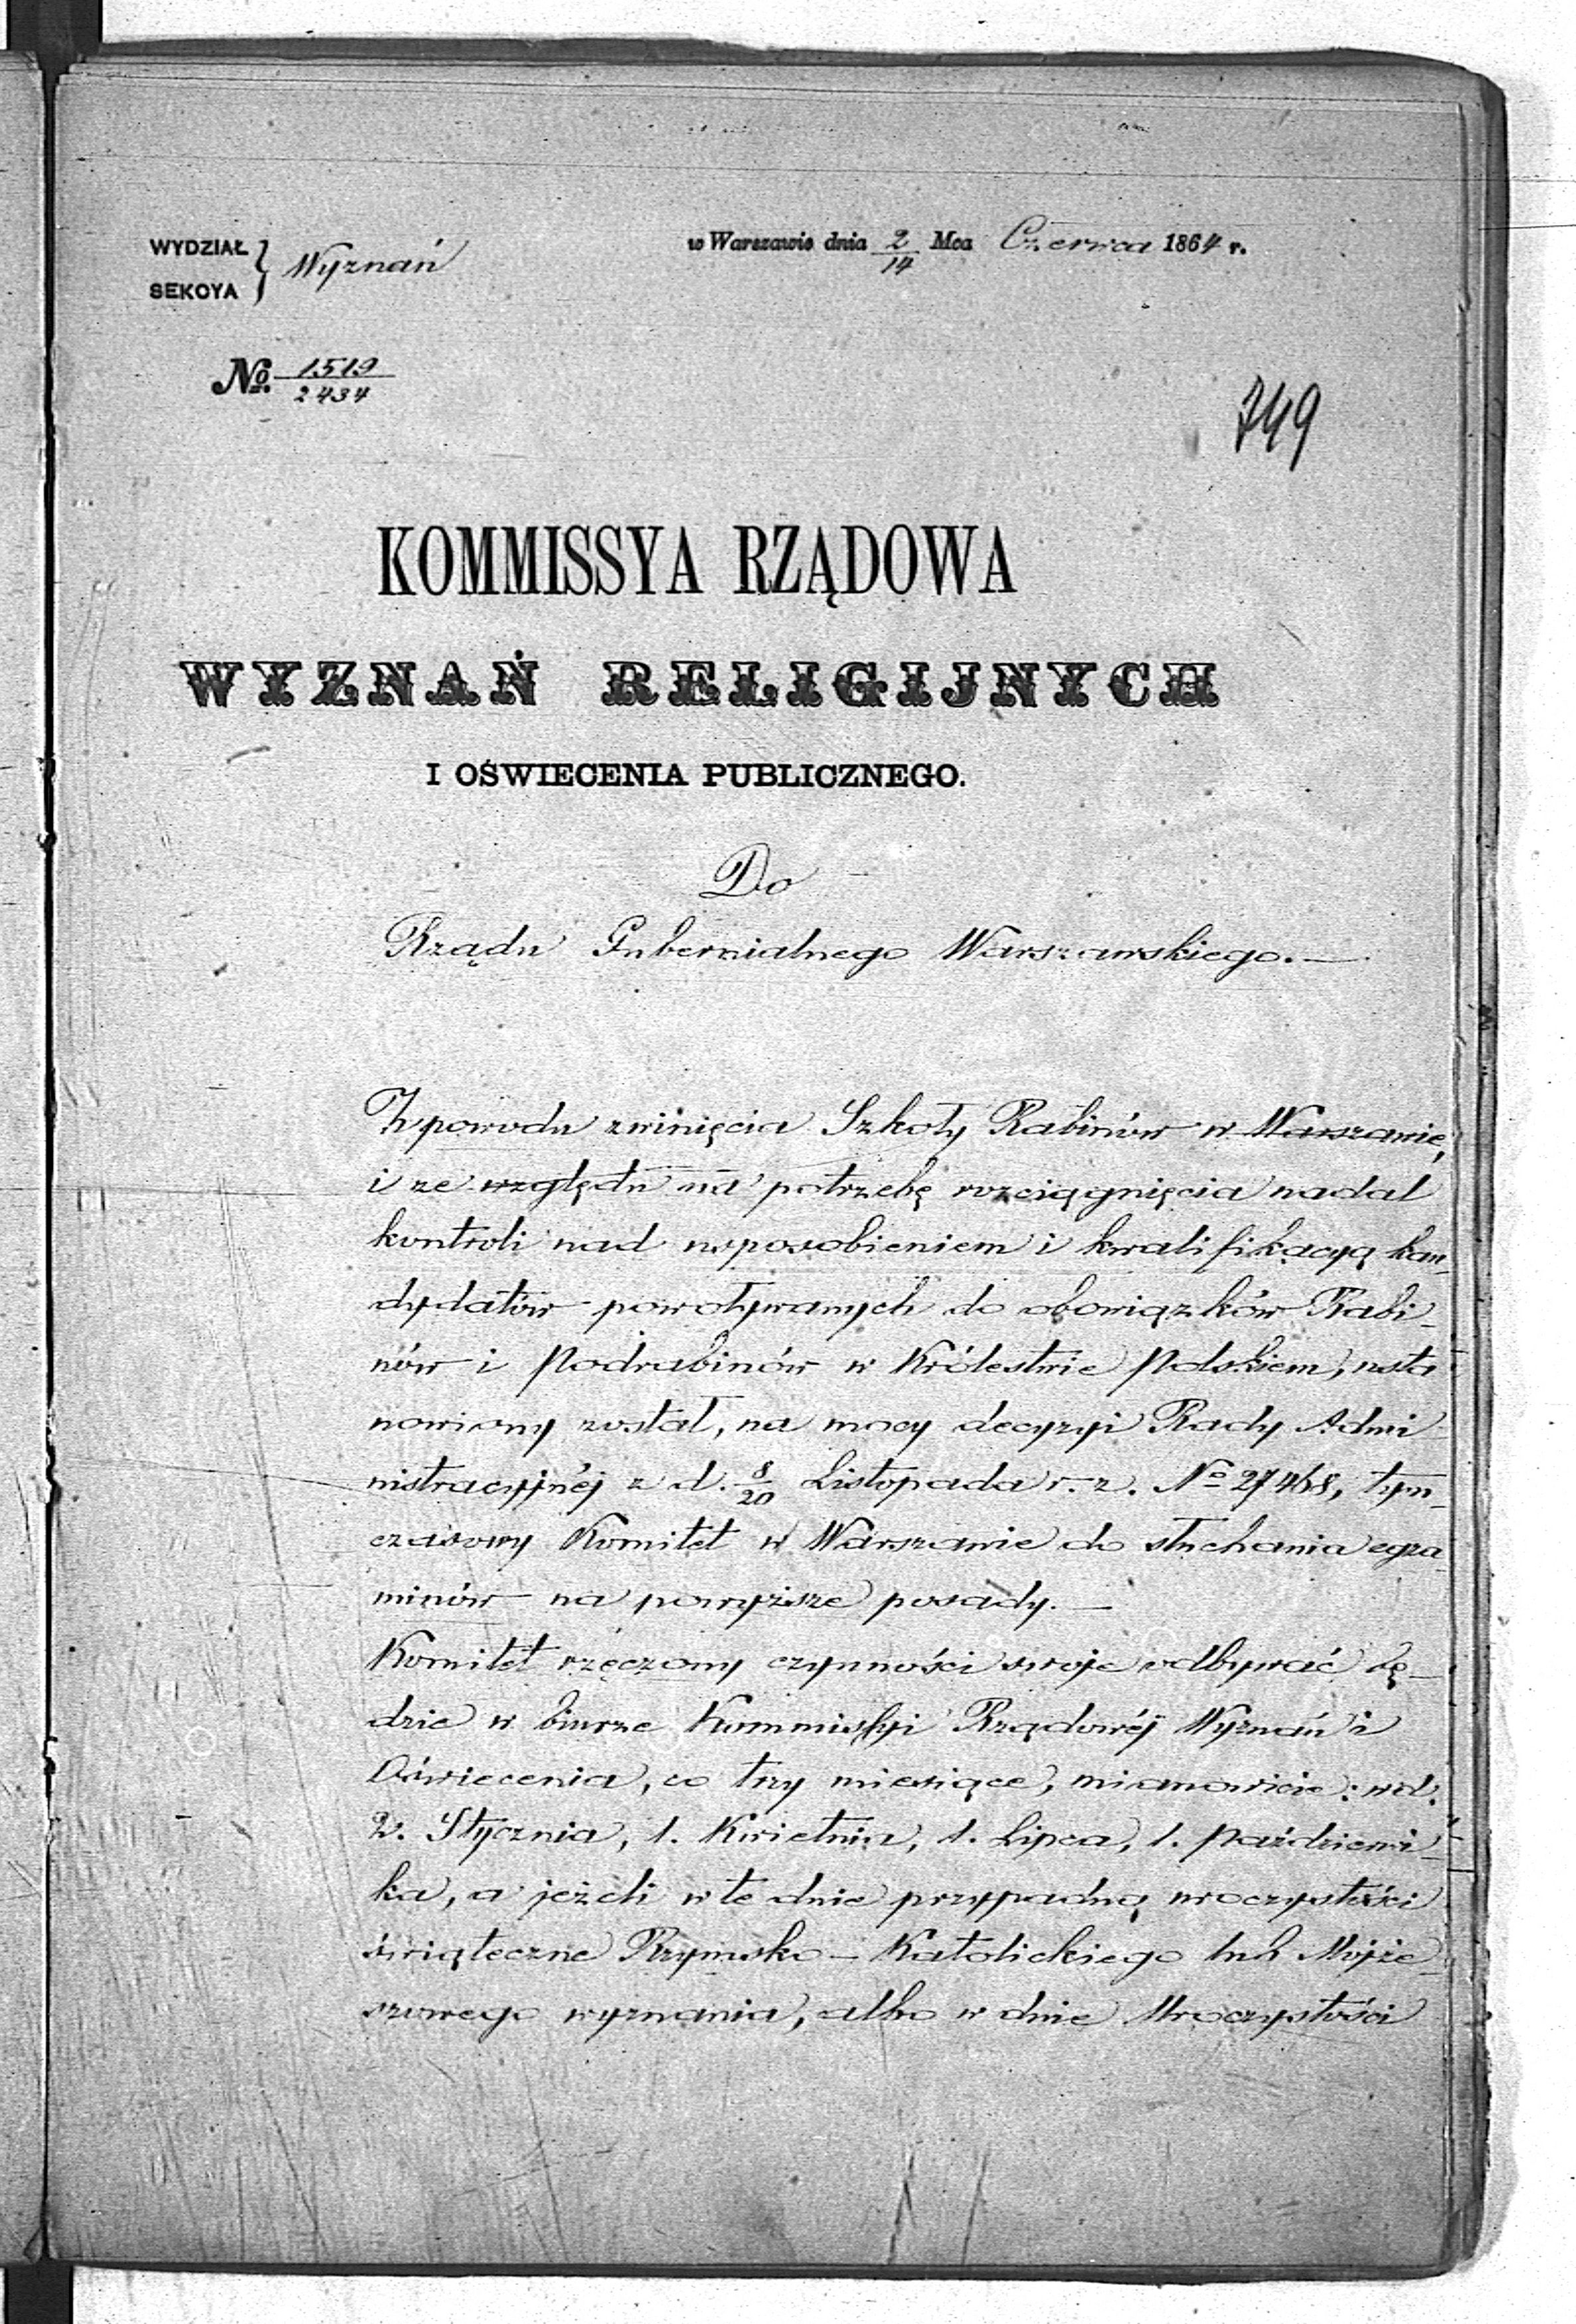 WYDZIAŁ
SEKCYA } Wyznań
w Warszawie dnia 2/14 Mca Czerwca 1864 r.
No. 1519/2434
749
KOMMISSYA RZĄDOWA
WYZNAŃ RELIGIJNYCH
I OŚWIECENIA PUBLICZNEGO.
Do
Rządu Gubernialnego Warszawskiego.—
Z powodu zwinięcia Szkoły Rabinów w Warszawie,
i ze względu na potrzebę rozciągnięcia nadal
kontroli nad usposobieniem i kwalifikacyą kan-
dydatów powoływanych do obowiązków Rabi-
nów i Podrabinów w Królestwie Polskiem, usta
nowiony został, na mocy decyzyi Rady Admi
nistracyjnéj z d. 8/20 Listopada r. z. No 27468, tym-
czasowy Komitet w Warszawie do słuchania egza
minów na powyższe posady.—
Komitet rzęczony czynności swoje odbywać bę-
dzie w biurze Kommissyi Rządowéj Wyznań i
Oświecenia, co trzy miesiące, mianowicie: w d.
2. Stycznia, 1. Kwietnia, 1. Lipca, 1. Październi-
ka, a jeżeli w te dnie przypadną uroczystości
świąteczne Rzymsko-Katolickiego lub Mojże-
szowego wyznania, albo w dnie Uroczystości